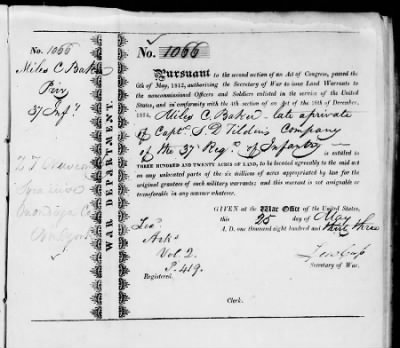 No. 1066
Miles C Baker
Priv
37 Infy.
WAR DEPARTMENT.
No. 1066
Pursuant to the second section of an Act of Congress, passed the
6th of May, 1812, authorising the Secretary of War to issue Land Warrants to
the noncommissioned Officers and Soldiers enlisted in the service of the United
States, and in conformity with the 4th section of an Act of the 10th of December,
1814, Miles C. Baker late a private
of Capt. S. D Tilden's Company
of the 37 Regt. of Infantry is entitled to
THREE HUNDRED AND TWENTY ACRES OF LAND, to be located agreeably to the said act
on any unlocated parts of the six millions of acres appropriated by law for
the original grantees of such military warrants; and this warrant is not assignable or
transferable in any manner whatever.
GIVEN at the War Office of the United States,
this 25 day of May
A. D. one thousand eight hundred and thirty three
Lew Cass
Secretary of War.
Arks
Vol 2.
P. 419.
Registered.
Clerk.